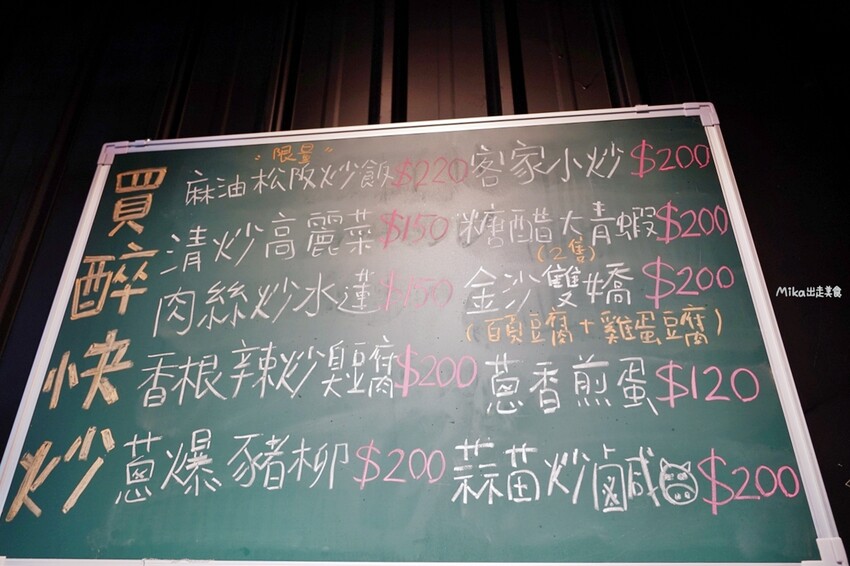 買醉快炒
"限量"
麻油松阪炒飯$220
清炒高麗菜$150
肉絲炒水蓮$150
香根辣炒臭豆腐$200
蔥爆豬柳$200
客家小炒$200
糖醋大青蝦$200
(2隻)
金沙雙嬌$200
(百頁豆腐+雞蛋豆腐)
蔥香煎蛋$120
蒜苗炒鹹$200
Mika出走美食